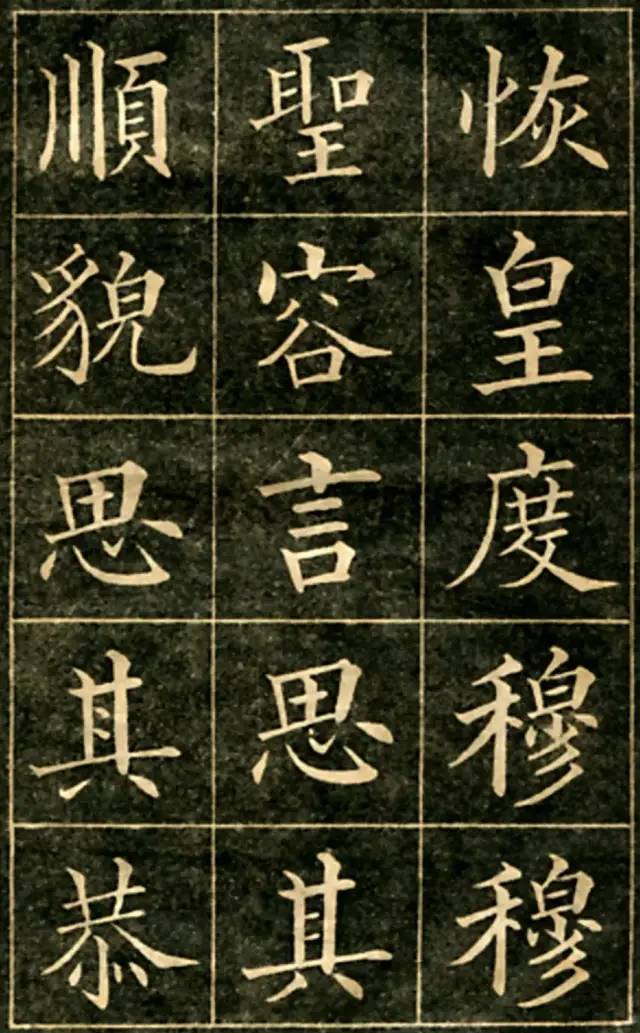 恢皇度穆穆
聖容言思其
順貌思其恭